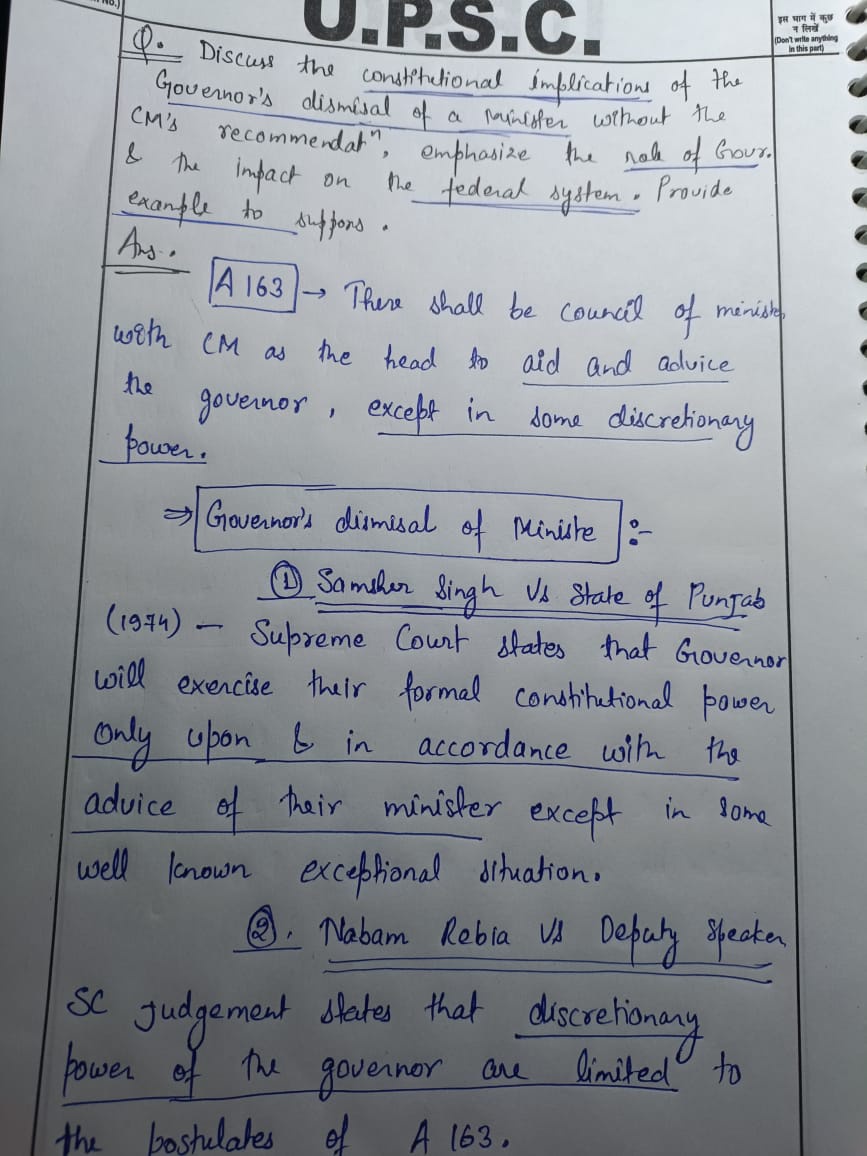 No.)
U.P.S.C.
इस भाग में कुछ
न लिखें
(Don't write anything
in this part)
Q. Discuss the constitutional implications of the
Governor's dismisal of a minister without the
CM's recommendatⁿ, emphasize the role of Gour.
& the impact on the federal system. Provide
example to suppors.
Ans.
A 163 → There shall be council of ministe,
with CM as the head to aid and advice
the governor, except in some discretionary
power.
⇒ Governor's dismisal of Ministe :-
① Samsher Singh Vs State of Punjab
(1974) – Supreme Court states that Governor
will exercise their formal constitutional power
only upon & in accordance with the
advice of their minister except in some
well known exceptional situation.
②. Nabam Rebia Vs Deputy Speaker
SC judgement states that discretionary
power of the governor are limited to
the postulates of A 163.